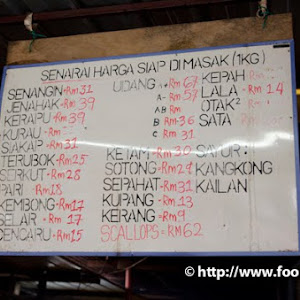 SENARAI HARGA SIAP DIMASAK (1KG)
SENANGIN - RM 31
JENAHAK - RM 39
KERAPU - RM 39
KURAU - RM
SIAKAP - RM 31
TERUBOK - RM 25
SERKUT - RM 28
PARI - RM 18
KEMBONG - RM 17
SELAR - RM 17
CENCARU - RM 15
UDANG A+ RM 67
A - RM 57
B RM
B RM 36
C RM 31
KETAM - RM 30
SOTONG - RM 29
SEPAHAT - RM 31
KUPANG - RM 13
KERANG - RM 9
SCALLOPS - RM 62
KEPAH
LALA - RM 14
OTAK²
SATA
SAYUR:
KANGKONG
KAILAN
© http://www.foo